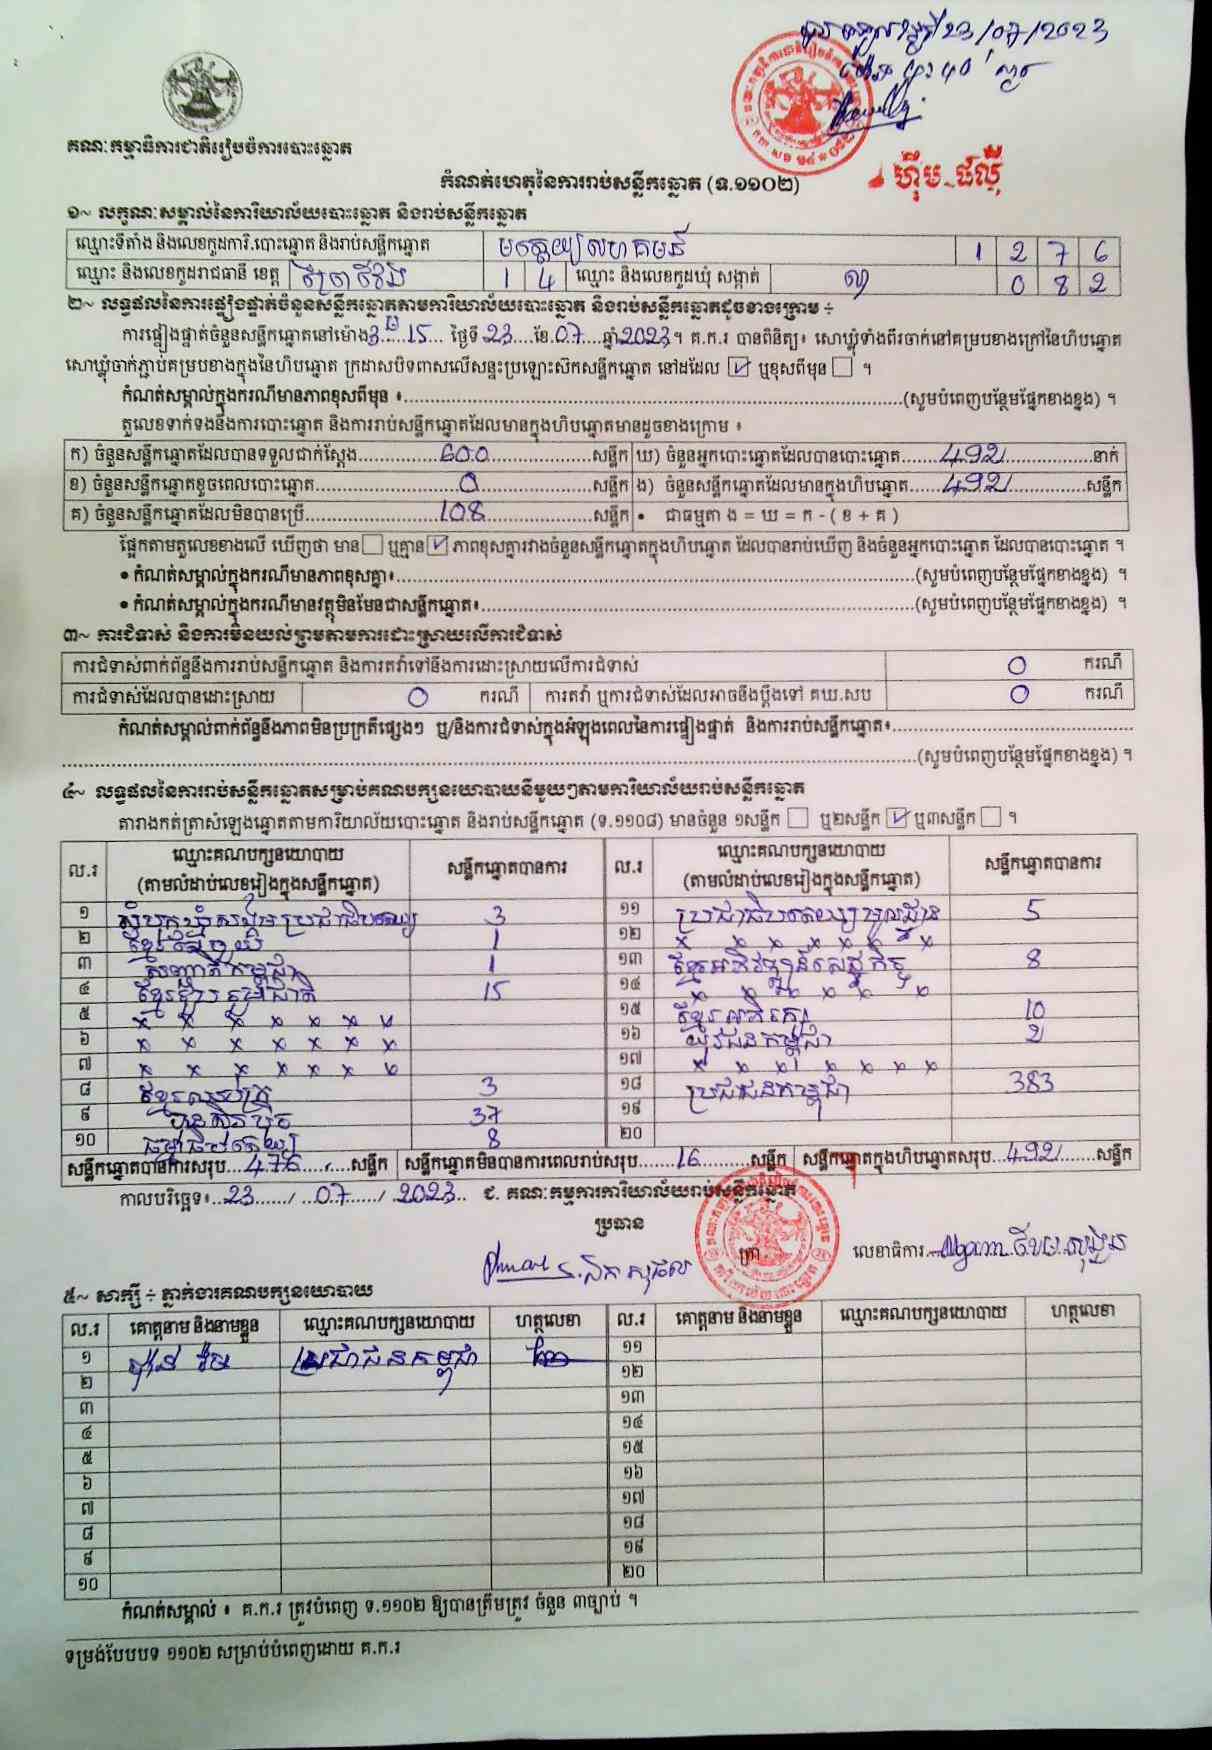 ថ្ងៃទី 23/07/2023
គណៈកម្មាធិការជាតិរៀបចំការបោះឆ្នោត
កំណត់ហេតុនៃការរាប់សន្លឹកឆ្នោត (ទ.១១០២)
ហ៊ឹម ផល្លី
១~ លក្ខណៈសម្គាល់នៃការិយាល័យបោះឆ្នោត និងរាប់សន្លឹកឆ្នោត
ឈ្មោះទីតាំង និងលេខកូដការិ.បោះឆ្នោត និងរាប់សន្លឹកឆ្នោត មត្តេយ្យសហគមន៍ 1 2 7 6
ឈ្មោះ និងលេខកូដរាជធានី ខេត្ត ព្រៃវែង 1 4 ឈ្មោះ និងលេខកូដឃុំ សង្កាត់ 0 8 2
២~ លទ្ធផលនៃការផ្ទៀងផ្ទាត់ចំនួនសន្លឹកឆ្នោតតាមការិយាល័យបោះឆ្នោត និងរាប់សន្លឹកឆ្នោតដូចខាងក្រោម ÷
ការផ្ទៀងផ្ទាត់ចំនួនសន្លឹកឆ្នោតនៅម៉ោង 3 15 ថ្ងៃទី 23 ខែ 07 ឆ្នាំ 2023 ។ គ.ក.រ បានពិនិត្យ៖ សោឃ្លុំទាំងពីរចាក់នៅគម្របខាងក្រៅនៃហិបឆ្នោត
សោឃ្លុំចាក់ភ្ជាប់គម្របខាងក្នុងនៃហិបឆ្នោត ក្រដាសបិទពាសលើសន្ទះប្រឡោះស៊កសន្លឹកឆ្នោត នៅដដែល ☑ ឬខុសពីមុន ☐ ។
កំណត់សម្គាល់ក្នុងករណីមានភាពខុសពីមុន ៖ (សូមបំពេញបន្ថែមផ្នែកខាងខ្នង) ។
តួលេខទាក់ទងនឹងការបោះឆ្នោត និងការរាប់សន្លឹកឆ្នោតដែលមានក្នុងហិបឆ្នោតមានដូចខាងក្រោម ៖
ក) ចំនួនសន្លឹកឆ្នោតដែលបានទទួលជាក់ស្តែង 600 សន្លឹក ឃ) ចំនួនអ្នកបោះឆ្នោតដែលបានបោះឆ្នោត 492 នាក់
ខ) ចំនួនសន្លឹកឆ្នោតខូចពេលបោះឆ្នោត 0 សន្លឹក ង) ចំនួនសន្លឹកឆ្នោតដែលមានក្នុងហិបឆ្នោត 492 សន្លឹក
គ) ចំនួនសន្លឹកឆ្នោតដែលមិនបានប្រើ 108 សន្លឹក • ជាធម្មតា ង = ឃ = ក - ( ខ + គ )
ផ្អែកតាមតួលេខខាងលើ ឃើញថា មាន ☐ ឬគ្មាន ☑ ភាពខុសគ្នារវាងចំនួនសន្លឹកឆ្នោតក្នុងហិបឆ្នោត ដែលបានរាប់ឃើញ និងចំនួនអ្នកបោះឆ្នោត ដែលបានបោះឆ្នោត ។
• កំណត់សម្គាល់ក្នុងករណីមានភាពខុសគ្នា៖ (សូមបំពេញបន្ថែមផ្នែកខាងខ្នង) ។
• កំណត់សម្គាល់ក្នុងករណីមានវត្ថុមិនមែនជាសន្លឹកឆ្នោត៖ (សូមបំពេញបន្ថែមផ្នែកខាងខ្នង) ។
៣~ ការជំទាស់ និងការមិនយល់ព្រមតាមការដោះស្រាយលើការជំទាស់
ការជំទាស់ពាក់ព័ន្ធនឹងការរាប់សន្លឹកឆ្នោត និងការតវ៉ាទៅនឹងការដោះស្រាយលើការជំទាស់ 0 ករណី
ការជំទាស់ដែលបានដោះស្រាយ 0 ករណី ការតវ៉ា ឬការជំទាស់ដែលអាចនឹងប្តឹងទៅ គឃ.សប 0 ករណី
កំណត់សម្គាល់ពាក់ព័ន្ធនឹងភាពមិនប្រក្រតីផ្សេងៗ ឬ/និងការជំទាស់ក្នុងអំឡុងពេលនៃការផ្ទៀងផ្ទាត់ និងការរាប់សន្លឹកឆ្នោត៖
(សូមបំពេញបន្ថែមផ្នែកខាងខ្នង) ។
៤~ លទ្ធផលនៃការរាប់សន្លឹកឆ្នោតសម្រាប់គណបក្សនយោបាយនីមួយៗតាមការិយាល័យរាប់សន្លឹកឆ្នោត
តារាងកត់ត្រាសំឡេងឆ្នោតតាមការិយាល័យបោះឆ្នោត និងរាប់សន្លឹកឆ្នោត (ទ.១១០៨) មានចំនួន ១សន្លឹក ☐ ឬ២សន្លឹក ☑ ឬ៣សន្លឹក ☐ ។
ល.រ ឈ្មោះគណបក្សនយោបាយ សន្លឹកឆ្នោតបានការ ល.រ ឈ្មោះគណបក្សនយោបាយ សន្លឹកឆ្នោតបានការ
(តាមលំដាប់លេខរៀងក្នុងសន្លឹកឆ្នោត) (តាមលំដាប់លេខរៀងក្នុងសន្លឹកឆ្នោត)
១ សំបុកឃ្មុំសង្គមប្រជាធិបតេយ្យ 3 ១១ ប្រជាធិបតេយ្យមូលដ្ឋាន 5
២ ខ្មែរ 1 ១២ x x x x x x x
៣ សញ្ជាតិកម្ពុជា 1 ១៣ ខ្មែរអភិវឌ្ឍន៍សេដ្ឋកិច្ច 8
៤ ខ្មែររួបរួមជាតិ 15 ១៤ x x x x x x x
៥ x x x x x x x ១៥ ខ្មែរអភិរក្ស 10
៦ x x x x x x x ១៦ យុវជនកម្ពុជា 2
៧ x x x x x x x ១៧ x x x x x x x
៨ ខ្មែរឈប់ក្រ 3 ១៨ ប្រជាជនកម្ពុជា 383
៩ ហ្វ៊ុនស៊ិនប៉ិច 37 ១៩
១០ ធម្មាធិបតេយ្យ 8 ២០
សន្លឹកឆ្នោតបានការសរុប 476 សន្លឹក សន្លឹកឆ្នោតមិនបានការពេលរាប់សរុប 16 សន្លឹក សន្លឹកឆ្នោតក្នុងហិបឆ្នោតសរុប 492 សន្លឹក
កាលបរិច្ឆេទ៖ 23 / 07 / 2023 ជ. គណៈកម្មការការិយាល័យរាប់សន្លឹកឆ្នោត
ប្រធាន
ត្រា លេខាធិការ
៥~ សាក្សី ÷ ភ្នាក់ងារគណបក្សនយោបាយ
ល.រ គោត្តនាម និងនាមខ្លួន ឈ្មោះគណបក្សនយោបាយ ហត្ថលេខា ល.រ គោត្តនាម និងនាមខ្លួន ឈ្មោះគណបក្សនយោបាយ ហត្ថលេខា
១ ប្រជាជនកម្ពុជា ១១
២ ១២
៣ ១៣
៤ ១៤
៥ ១៥
៦ ១៦
៧ ១៧
៨ ១៨
៩ ១៩
១០ ២០
កំណត់សម្គាល់ ៖ គ.ក.រ ត្រូវបំពេញ ទ.១១០២ ឱ្យបានត្រឹមត្រូវ ចំនួន ៣ច្បាប់ ។
ទម្រង់បែបបទ ១១០២ សម្រាប់បំពេញដោយ គ.ក.រ